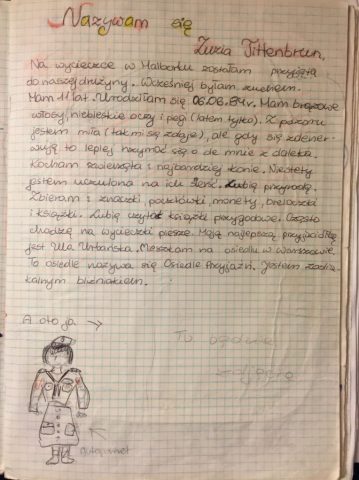 Nazywam się
Zuzia Tittenbrun.
Na wycieczce w Malborku zostałam przyjęta
do naszej drużyny. Wcześniej byłam zuchem.
Mam 11 lat. Urodziłam się 06.06.84r. Mam brązowe
włosy, niebieskie oczy i piegi (latem tylko). Z pozoru
jestem miła (tak mi się zdaje), ale gdy się zdener-
wuję to lepiej trzymać się ode mnie z daleka.
Kocham zwierzęta i najbardziej konie. Niestety
jestem uczulona na ich sierść. Lubię przyrodę.
Zbieram: znaczki, pocztówki, monety, breloczki
i książki. Lubię czytać książki przygodowe. Często
chodzę na wycieczki piesze. Moją najlepszą przyjaciółką
jest Ula Urbańska. Mieszkam na osiedlu w Warszawie.
To osiedle nazywa się Osiedle Przyjaźń. Jestem zodia-
kalnym bliźniakiem.
A oto ja →
Tu będzie
zdjęcie
autoportret